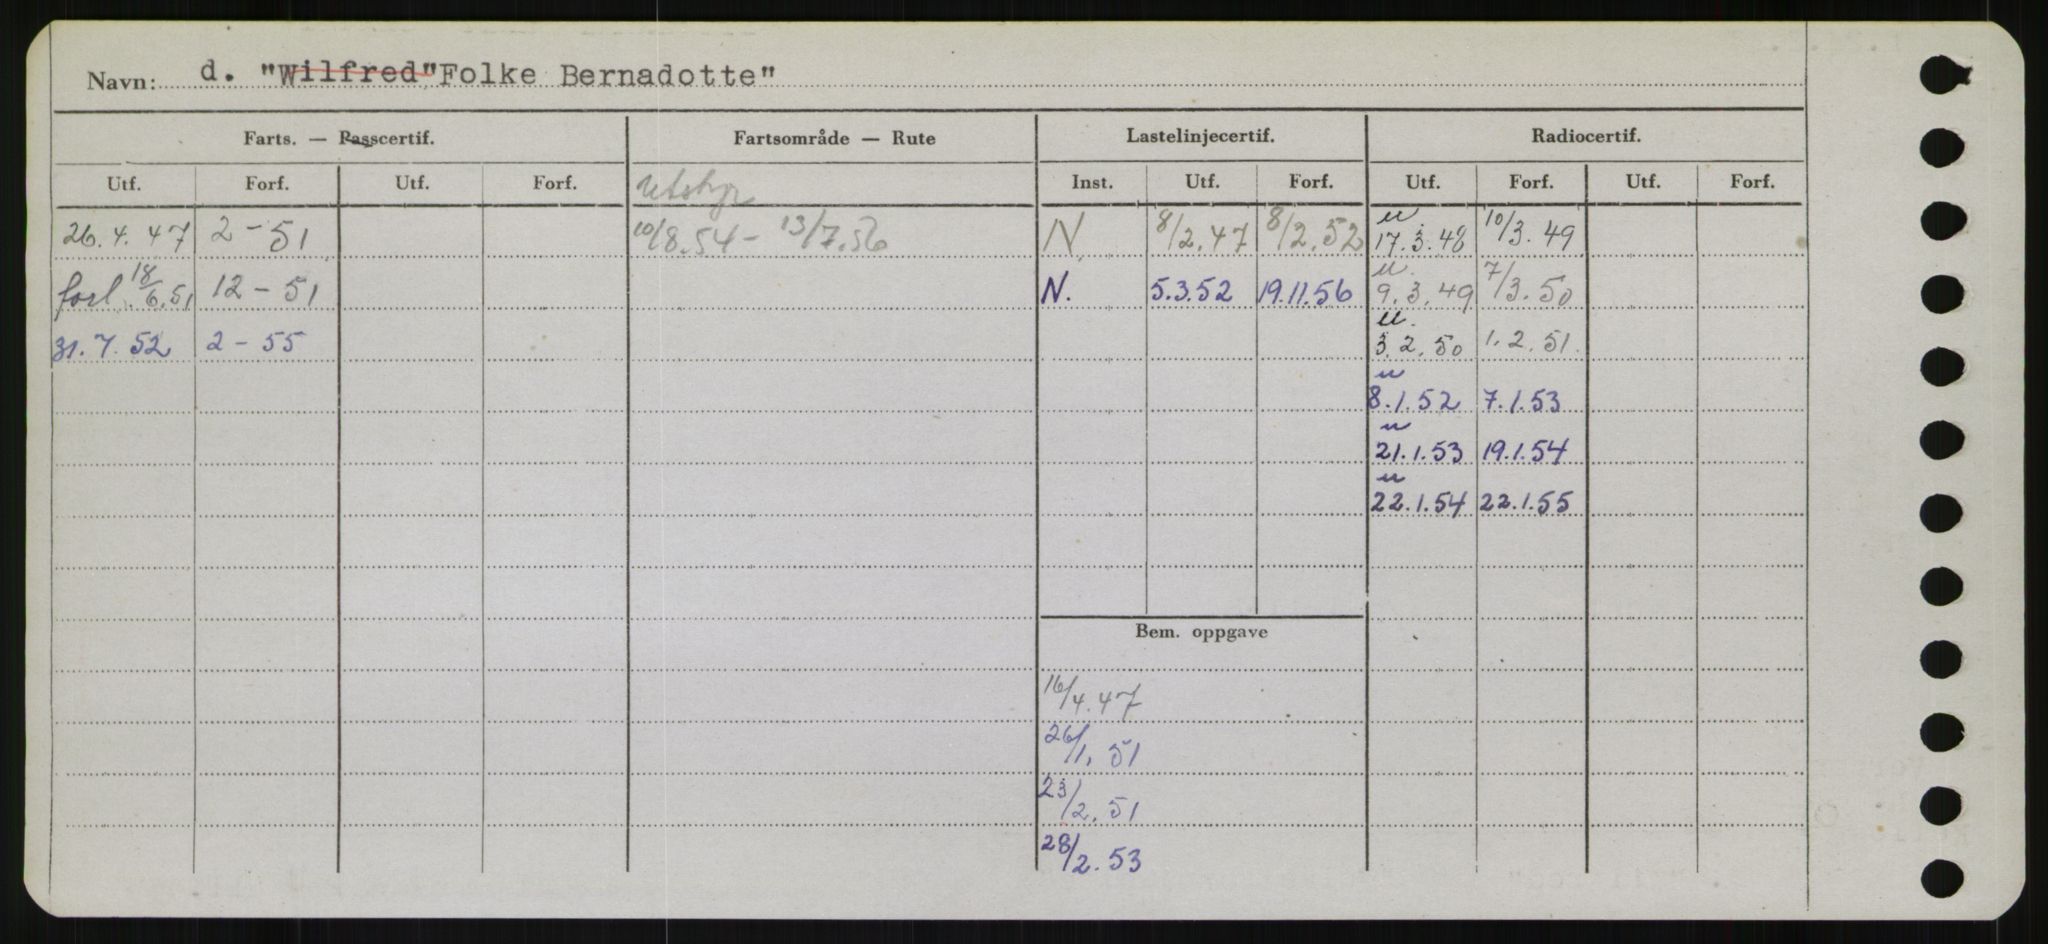 Navn: d. "Wilfred" Folke Bernadotte"
Farts. — Passcertif. Fartsområde — Rute Lastelinjecertif. Radiocertif.
Utf. Forf. Utf. Forf. Utstyr Inst. Utf. Forf. Utf. Forf. Utf. Forf.
26.4.47 2-51 10/8.54 - 13/7.56 N 8/2.47 8/2.52 u 17.3.48 10/3.49
forl. 18/6.51 12-51 N. 5.3.52 19.11.56 u. 9.3.49 7/3.50
31.7.52 2-55 u. 3.2.50 1.2.51.
u 8.1.52 7.1.53
u 21.1.53 19.1.54
u 22.1.54 22.1.55
Bem. oppgave
16/4.47
26/1.51
23/2.51
28/2.53